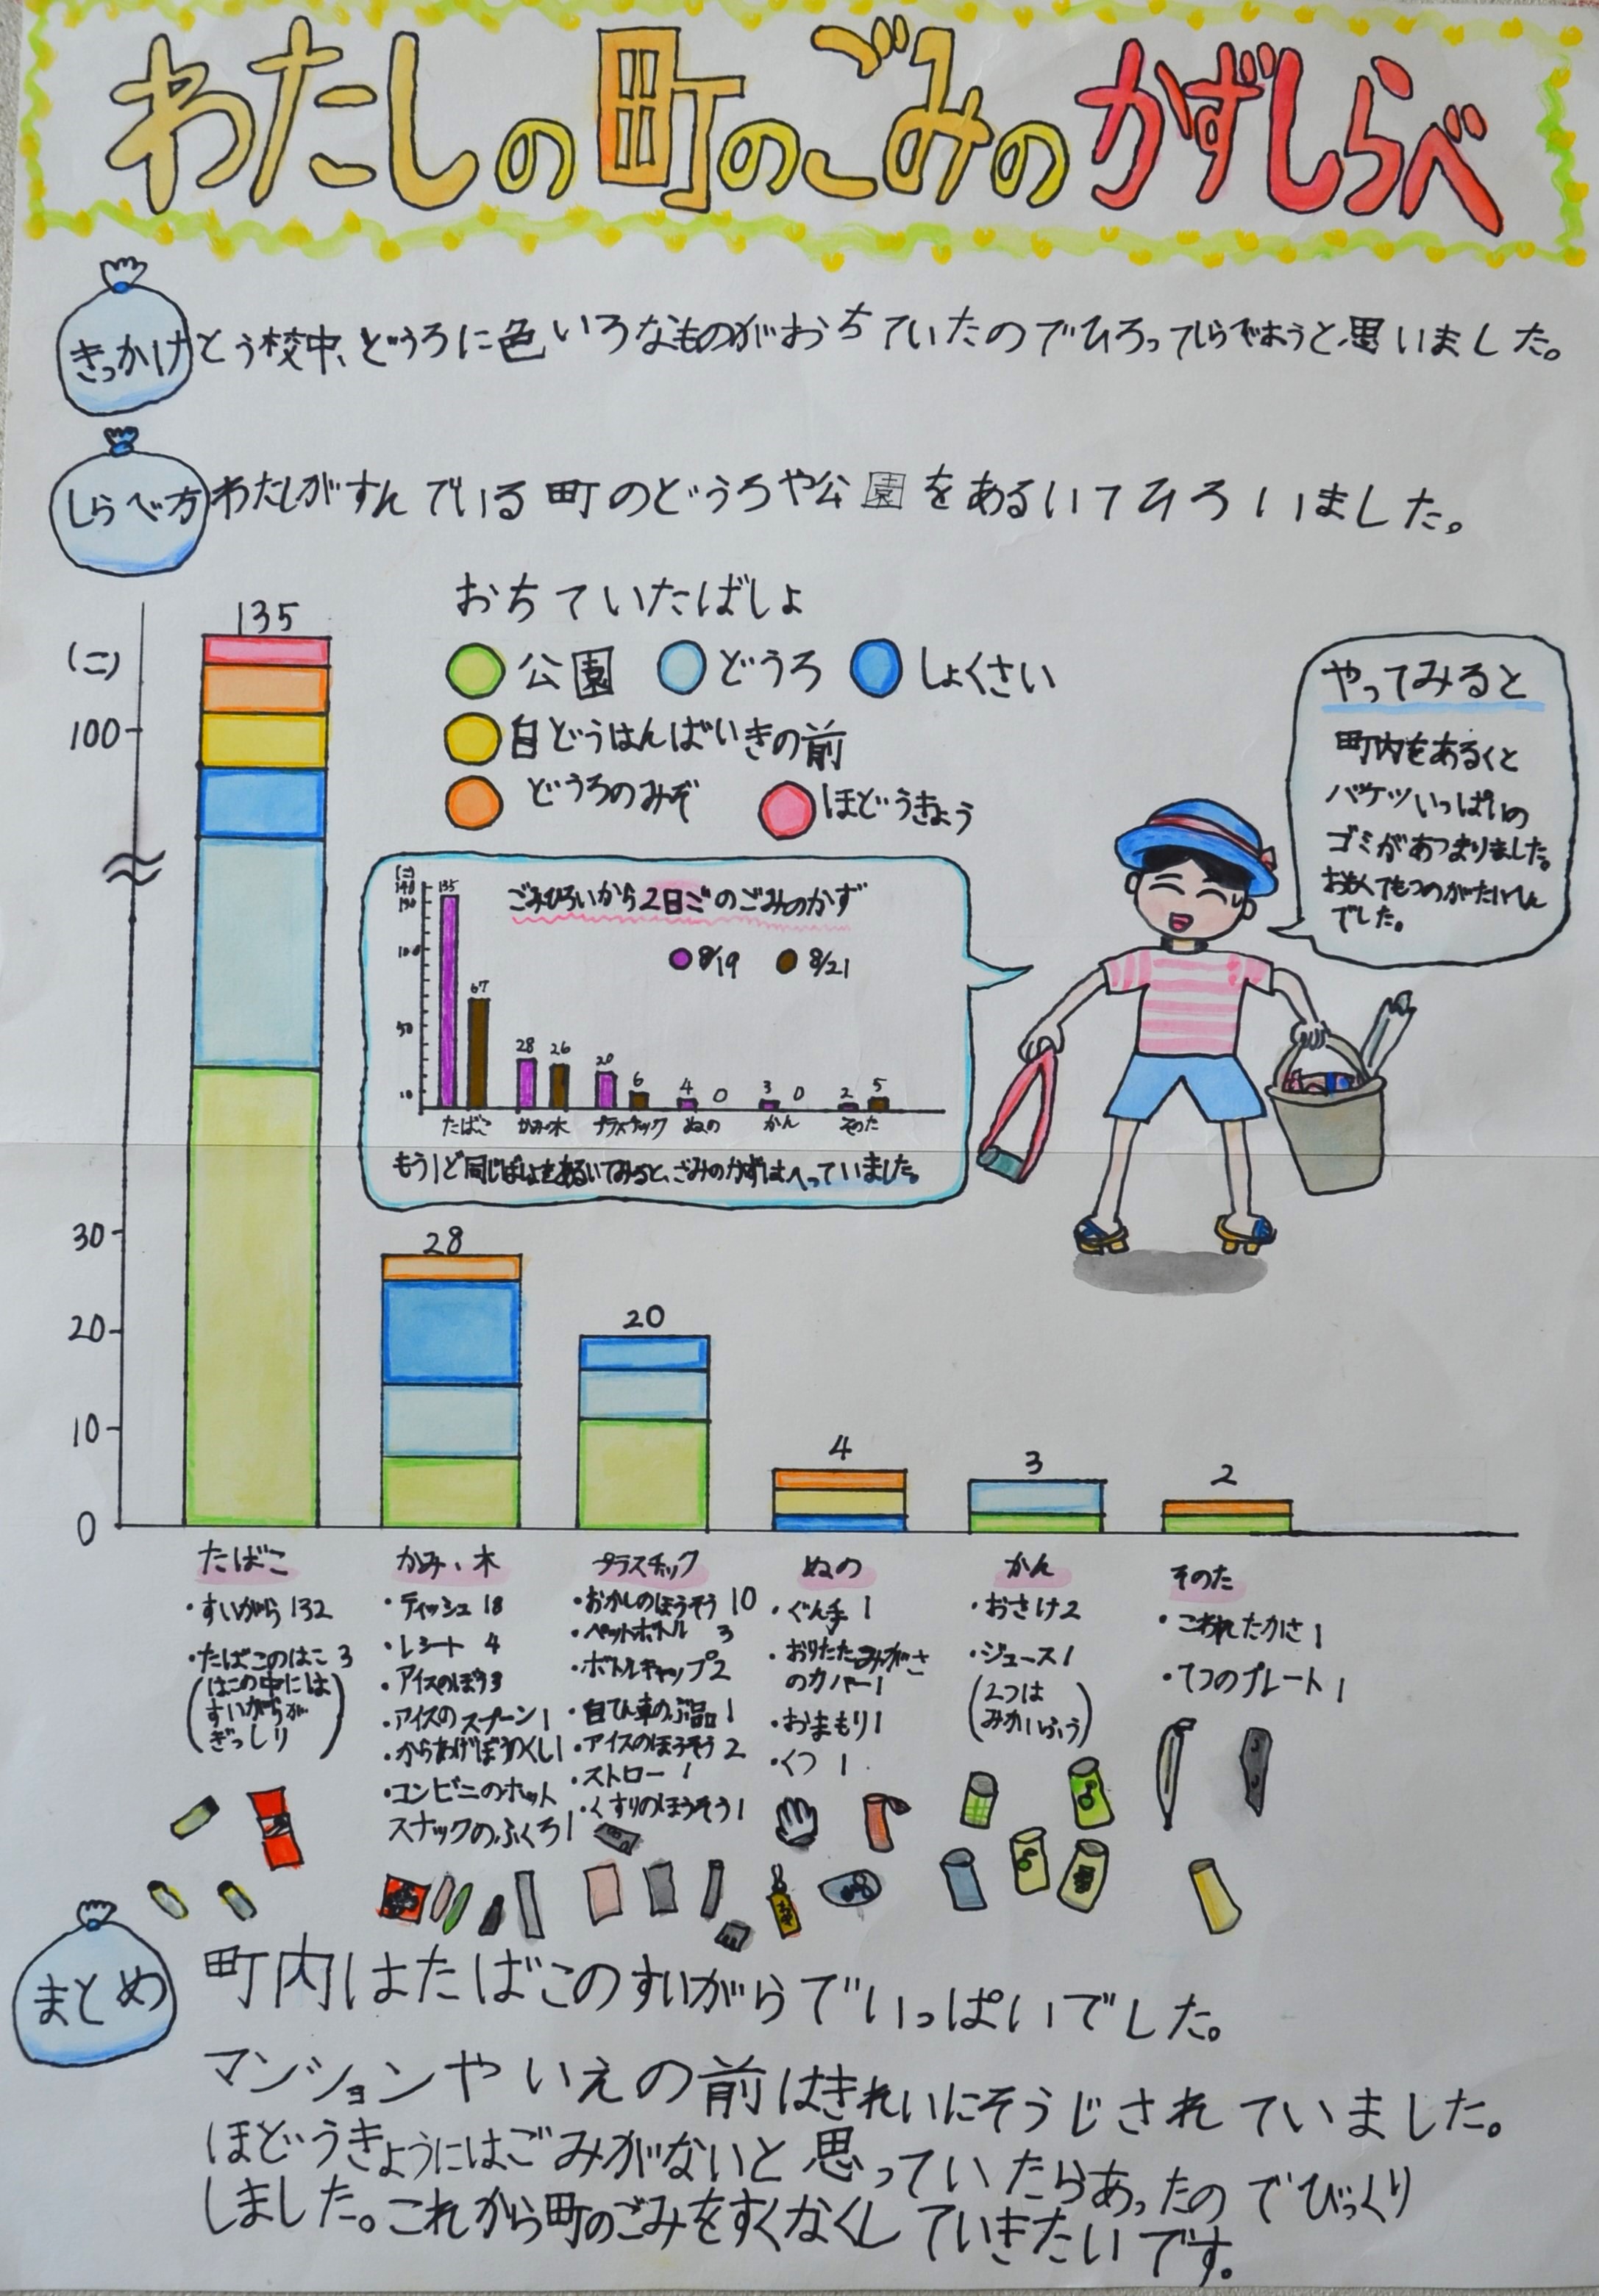 わたしの町のごみのかずしらべ
きっかけ
とう校中、どうろに色いろなものがおちていたのでひろってしらべようと思いました。
しらべ方
わたしがすんでいる町のどうろや公園をあるいてひろいました。
おちていたばしょ
公園 どうろ しょくさい
自どうはんばいきの前
どうろのみぞ ほどうきょう
やってみると
町内をあるくと
バケツいっぱいの
ゴミがあつまりました。
おもくてもつのがたいへん
でした。
ごみひろいから2日ごのごみのかず
8/19 8/21
(こ)
140
130
100
50
10
135 67
28 26
20 6
4 0
3 0
2 5
たばこ かみ・木 プラスチック ぬの かん そのた
もう1ど同じばしょをあるいてみると、ごみのかずはへっていました。
(こ)
100
30
20
10
0
135
28
20
4
3
2
たばこ
・すいがら 132
・たばこのはこ 3
(はこの中には
すいがらが
ぎっしり)
かみ、木
・ティッシュ 18
・レシート 4
・アイスのぼう3
・アイスのスプーン1
・からあげぼうのくし1
・コンビニのホット
スナックのふくろ1
プラスチック
・おかしのほうそう 10
・ペットボトル 3
・ボトルキャップ2
・自てん車のぶ品1
・アイスのほうそう 2
・ストロー 1
・くすりのほうそう1
ぬの
・ぐん手 1
・おりたたみがさ
のカバー1
・おまもり1
・くつ 1
かん
・おさけ2
・ジュース1
(2つは
みかいふう)
そのた
・こわれたかさ1
・てつのプレート1
まとめ
町内はたばこのすいがらでいっぱいでした。
マンションやいえの前はきれいにそうじされていました。
ほどうきょうにはごみがないと思っていたらあったのでびっくり
しました。これから町のごみをすくなくしていきたいです。